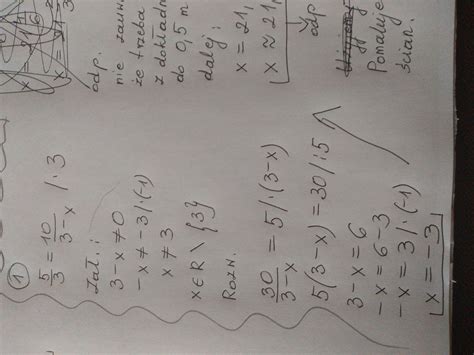 ①
5/3 = 10/(3-x) /·3
zał.:
3-x≠0
-x≠-3/·(-1)
x≠3
x∈R \ {3}
Rozw.
30/(3-x) = 5 /·(3-x)
5(3-x) = 30/:5
3-x=6
-x=6-3
-x=3/·(-1)
x=-3
odp.
nie
że trzeba
z dokładn
do 0,5 m
dalej:
x = 21,
x ≈ 21,
odp
Pomaluje
ścian.